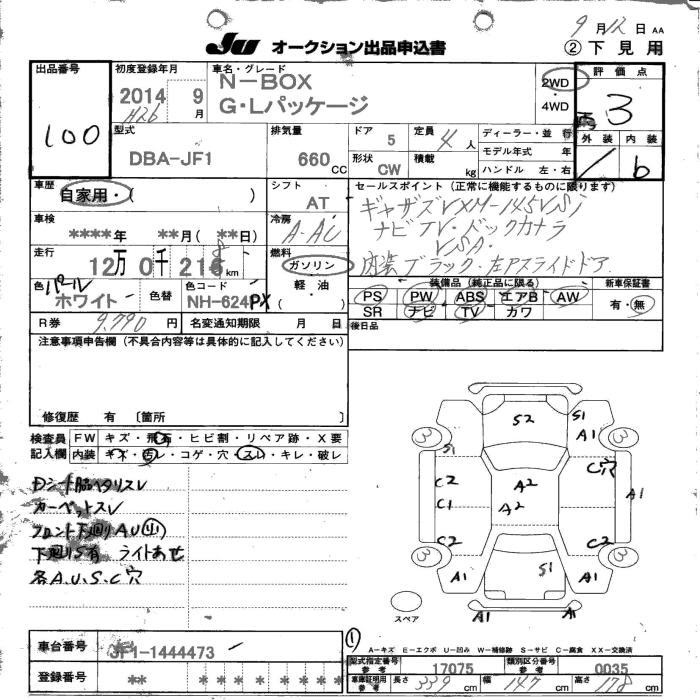 9月12日 AA
JU オークション出品申込書
②下見用
出品番号
100
初度登録年月
2014 9月
H26
車名・グレード
N-BOX
G・Lパッケージ
2WD
4WD
評価点
3
外装 内装
b
型式
DBA-JF1
排気量
660 CC
ドア
5
定員
4人
形状
CW
積載
kg
ディーラー・並行
モデル年式 年
ハンドル 左・右
車歴
自家用・( )
シフト
AT
セールスポイント(正常に機能するものに限ります)
ギャザズVXM-145VSi
ナビTV・バックカメラ
VSA
内装ブラック・左Pスライドドア
車検
****年 **月(**日)
冷房
A-AC
走行
12万0千216km
8
燃料
ガソリン
軽油
( )
色 パール
ホワイト
色替
色コード
NH-624PX
装備品(純正品に限る)
PS PW ABS エアB AW
SR ナビ TV カワ
新車保証書
有・無
R券 9,790円
名変通知期限 月 日
後日品
注意事項申告欄(不具合内容等は具体的に記入してください)
修復歴 有 〔箇所 〕
検査員記入欄
FW キズ・飛石・ヒビ割・リペア跡・X要
内装 キズ・汚レ・コゲ・穴・スレ・キレ・破レ
Dシート脇ヘタリスレ
カーペットスレ
フロント下廻りAU(小)
下廻りS有 ライトあせ
各A.U.S.C穴
S2
S1
A1
3
3
S1
C2
C1
C2
A2
A2
C穴
A1
C2
3
3
A1
S1
A1
A1
A1
スペア
車台番号
JF1-1444473
登録番号
** * * * * * *
①
A-キズ E-エクボ U-凹み W-補修跡 S-サビ C-腐食 XX-交換済
型式指定番号 参考
17075
類別区分番号 参考
0035
車庫証明用 参考
長さ 339cm 幅 147cm 高さ 178cm